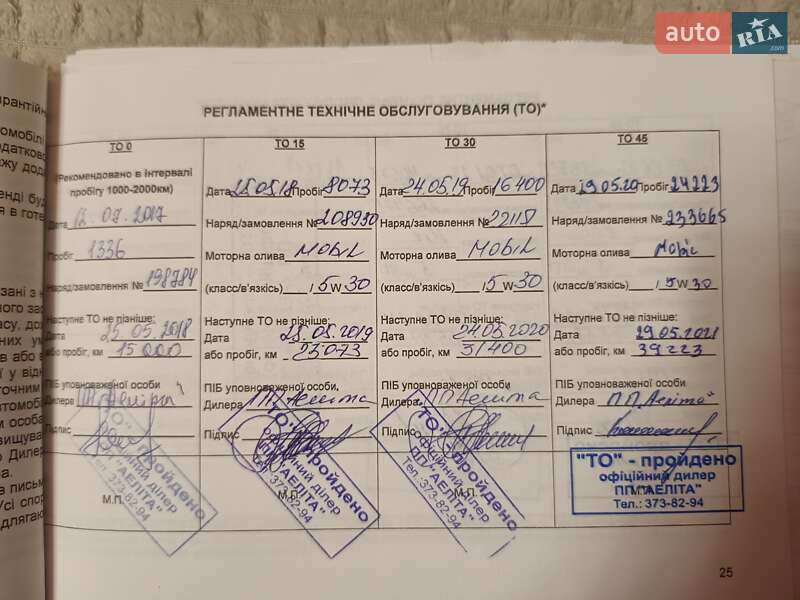 auto RIA
.com
РЕГЛАМЕНТНЕ ТЕХНІЧНЕ ОБСЛУГОВУВАННЯ (ТО)*
ТО 0
(Рекомендовано в інтервалі
пробігу 1000-2000км)
Дата 12.09.2017
Пробіг 1336
Наряд/замовлення № 198784
Наступне ТО не пізніше:
Дата 25.05.2018
або пробіг, км 15000
ПІБ уповноваженої особи
Дилера
Підпис
М.П.
ТО 15
Дата 25.05.18 Пробіг 8073
Наряд/замовлення № 208930
Моторна олива Mobil
(класс/в'язкість) / 5 W 30
Наступне ТО не пізніше:
Дата 25.05.2019
або пробіг, км 23073
ПІБ уповноваженої особи
Дилера ПП Аеліта
Підпис
"ТО" - пройдено
офіційний дилер
ПП "АЕЛІТА"
Тел.: 373-82-94
ТО 30
Дата 24.05.19 Пробіг 16400
Наряд/замовлення № 22115
Моторна олива Mobil
(класс/в'язкість) / 5 W 30
Наступне ТО не пізніше:
Дата 24.05.2020
або пробіг, км 31400
ПІБ уповноваженої особи
Дилера ПП Аеліта
Підпис
"ТО" - пройдено
офіційний дилер
ПП "АЕЛІТА"
Тел.: 373-82-94
ТО 45
Дата 29.05.20 Пробіг 24223
Наряд/замовлення № 233665
Моторна олива Mobil
(класс/в'язкість) / 5 W 30
Наступне ТО не пізніше:
Дата 29.05.2021
або пробіг, км 39223
ПІБ уповноваженої особи
Дилера П.П. "Аеліта"
Підпис
"ТО" - пройдено
офіційний дилер
ПП "АЕЛІТА"
Тел.: 373-82-94
25